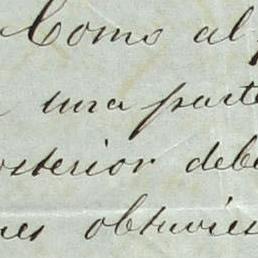 Como al
una parte
osterior debe
nes obtuvies